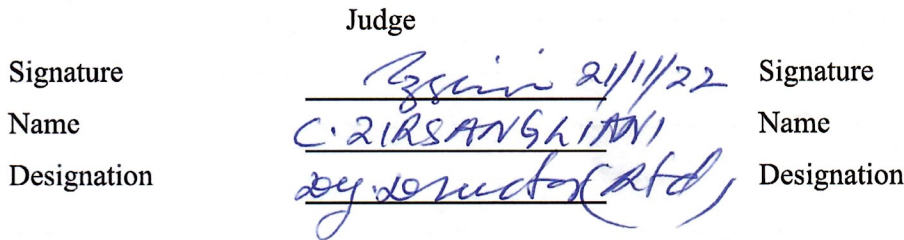 Judge
Signature 21/11/22 Signature
Name C. ZIRSANGLIANI Name
Designation Dy. Director (Rtd) Designation